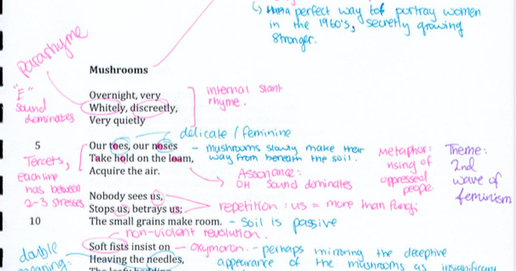 ↳ perfect way to portray women
in the 1960's, secretly growing
stronger.
Pararhyme
Mushrooms
"E"
sound
dominates
Overnight, very
Whitely, discreetly,
Very quietly
internal slant
rhyme.
delicate / feminine
5
Our toes, our noses
Take hold on the loam,
Acquire the air.
- mushrooms slowly make their
way from beneath the soil.
Tercets,
each line
has between
2-3 stresses
Assonance:
OH sound dominates
Metaphor:
rising of
oppressed
people
Theme:
2nd
wave of
feminism
Nobody sees us,
Stops us, betrays us;
10
The small grains make room.
repetition: us = more than fungi
- Soil is passive
non-violent revolution.
double
meaning:
Soft fists insist on
Heaving the needles,
- oxymoron. - perhaps mirroring the deceptive
appearance of the mushrooms as insignificant
The leafy bedding